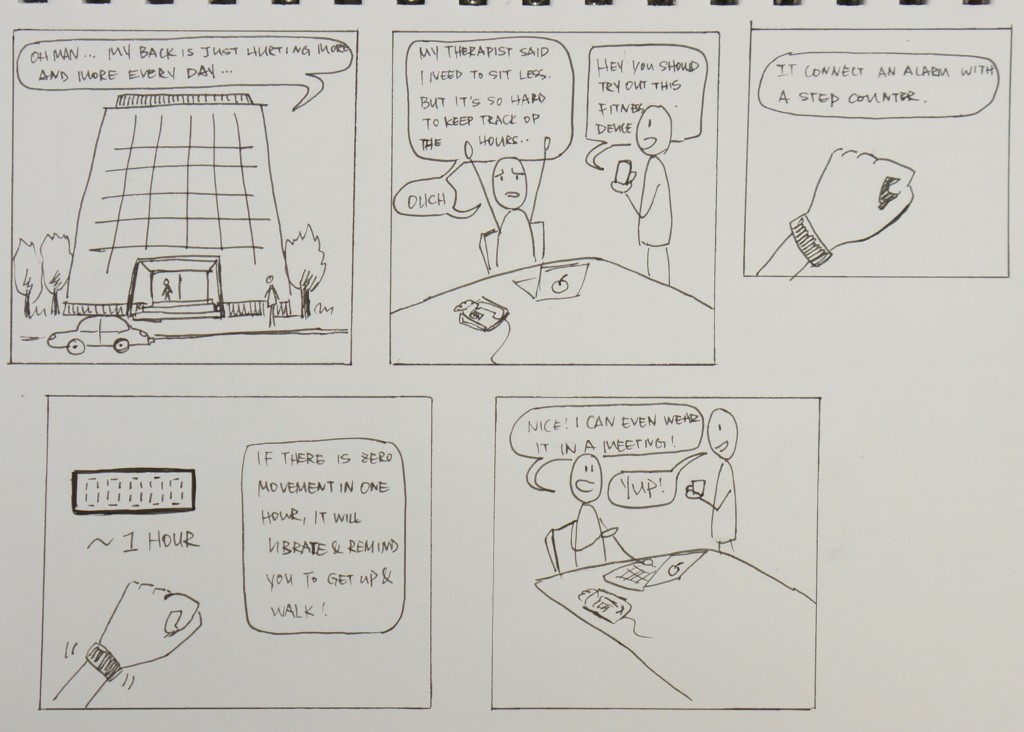 OH MAN... MY BACK IS JUST HURTING MORE
AND MORE EVERY DAY...
MY THERAPIST SAID
I NEED TO SIT LESS.
BUT IT'S SO HARD
TO KEEP TRACK OF
THE HOURS..
OUCH
HEY YOU SHOULD
TRY OUT THIS
FITNESS
DEVICE
IT CONNECT AN ALARM WITH
A STEP COUNTER.
00000
~ 1 HOUR
IF THERE IS ZERO
MOVEMENT IN ONE
HOUR, IT WILL
VIBRATE & REMIND
YOU TO GET UP &
WALK!
NICE! I CAN EVEN WEAR
IT IN A MEETING!
YUP!